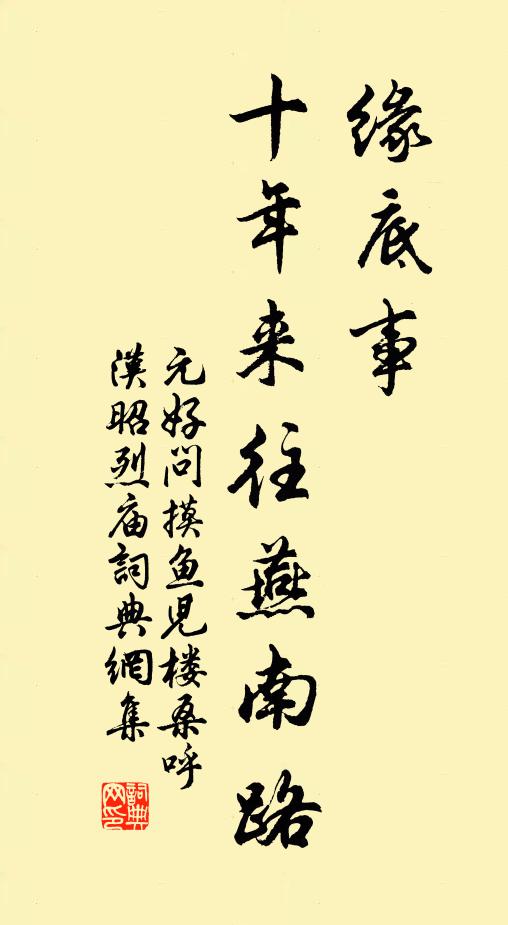 缘底事
十年来往燕南路
元好问摸鱼児楼桑呼
漢昭烈庙詞典網集
詞典
网印